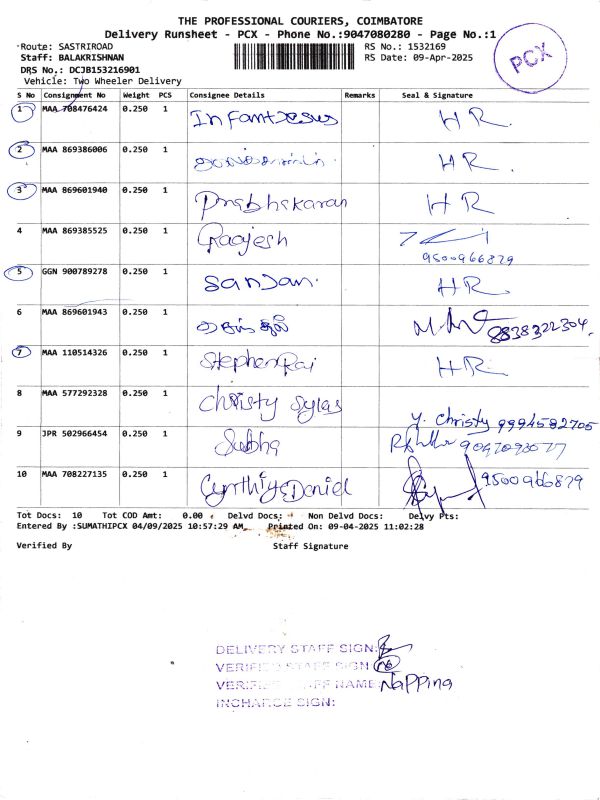 THE PROFESSIONAL COURIERS, COIMBATORE
Delivery Runsheet - PCX - Phone No.:9047080280 - Page No.:1
Route: SASTRIROAD RS No.: 1532169
Staff: BALAKRISHNAN RS Date: 09-Apr-2025
DRS No.: DCJB153216901
Vehicle: Two Wheeler Delivery
PCX
S No Consignment No Weight PCS Consignee Details Remarks Seal & Signature
1 MAA 708476424 0.250 1 Infant Jesus HR.
2 MAA 869386006 0.250 1 HR.
3 MAA 869601940 0.250 1 Prabhakaran HR
4 MAA 869385525 0.250 1 Raajesh
9500966879
5 GGN 900789278 0.250 1 Sanjan. HR
6 MAA 869601943 0.250 1 8838322304.
7 MAA 110514326 0.250 1 Stephen Raj HR.
8 MAA 577292328 0.250 1 Christy Sylas y. Christy 9994582705
9 JPR 502966454 0.250 1 Subha
10 MAA 708227135 0.250 1 Cynthiya Daniel 9500966879
Tot Docs: 10 Tot COD Amt: 0.00 Delvd Docs: Non Delvd Docs: Delvy Pts:
Entered By :SUMATHIPCX 04/09/2025 10:57:29 AM Printed On: 09-04-2025 11:02:28
Verified By Staff Signature
DELIVERY STAFF SIGN:
VERIFIED STAFF SIGN
VERIFIED STAFF NAME: Nappina
INCHARGE SIGN: